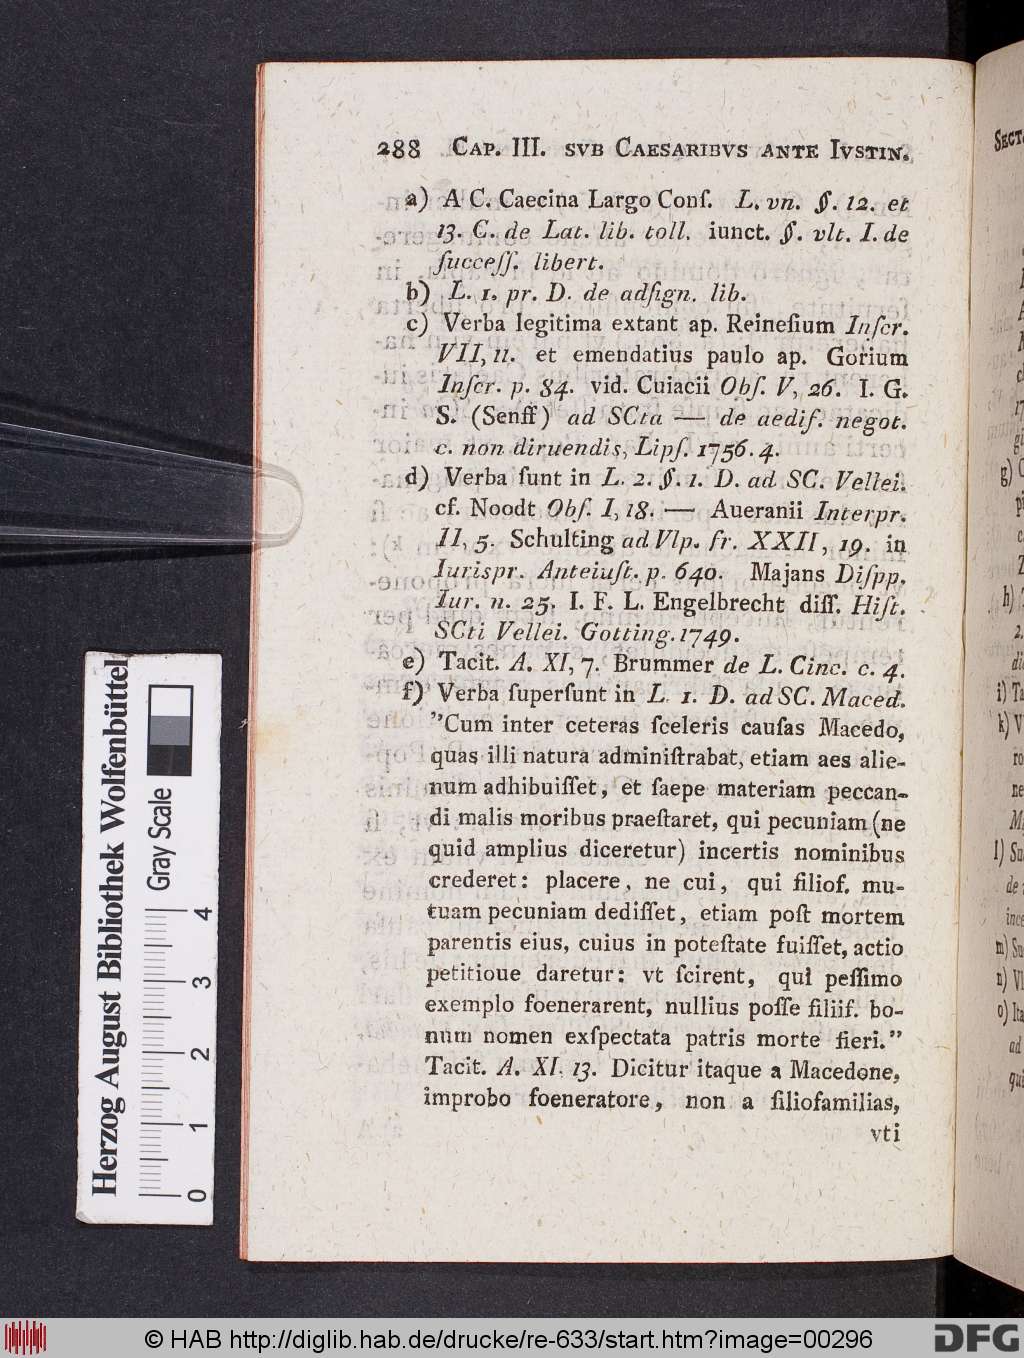 288 CAP. III. SVB CAESARIBVS ANTE IVSTIN.
a) A C. Caecina Largo Conſ. L. vn. §. 12. et
13. C. de Lat. lib. toll. iunct. §. vlt. I. de
ſucceſſ. libert.
b) L. 1. pr. D. de adſign. lib.
c) Verba legitima extant ap. Reineſium Inſcr.
VII, 11. et emendatius paulo ap. Gorium
Inſcr. p. 84. vid. Cuiacii Obſ. V, 26. I. G.
S. (Senff) ad SCta — de aedif. negot.
c. non diruendis, Lipſ. 1756. 4.
d) Verba ſunt in L. 2. §. 1. D. ad SC. Vellei.
cf. Noodt Obſ. I, 18. — Aueranii Interpr.
II, 5. Schulting ad Vlp. fr. XXII, 19. in
Iurispr. Anteiuſt. p. 640. Majans Diſpp.
Iur. n. 25. I. F. L. Engelbrecht diſſ. Hiſt.
SCti Vellei. Gotting. 1749.
e) Tacit. A. XI, 7. Brummer de L. Cinc. c. 4.
f) Verba ſuperſunt in L. 1. D. ad SC. Maced.
"Cum inter ceteras ſceleris cauſas Macedo,
quas illi natura adminiſtrabat, etiam aes alie-
num adhibuiſſet, et ſaepe materiam peccan-
di malis moribus praeſtaret, qui pecuniam (ne
quid amplius diceretur) incertis nominibus
crederet: placere, ne cui, qui filiof. mu-
tuam pecuniam dediſſet, etiam poſt mortem
parentis eius, cuius in poteſtate fuiſſet, actio
petitioue daretur: vt ſcirent, qui peſſimo
exemplo foenerarent, nullius poſſe filiif. bo-
num nomen exſpectata patris morte fieri."
Tacit. A. XI. 13. Dicitur itaque a Macedone,
improbo foeneratore, non a filiofamilias,
vti
Herzog August Bibliothek Wolfenbüttel
Gray Scale
0 1 2 3 4
© HAB http://diglib.hab.de/drucke/re-633/start.htm?image=00296
DFG